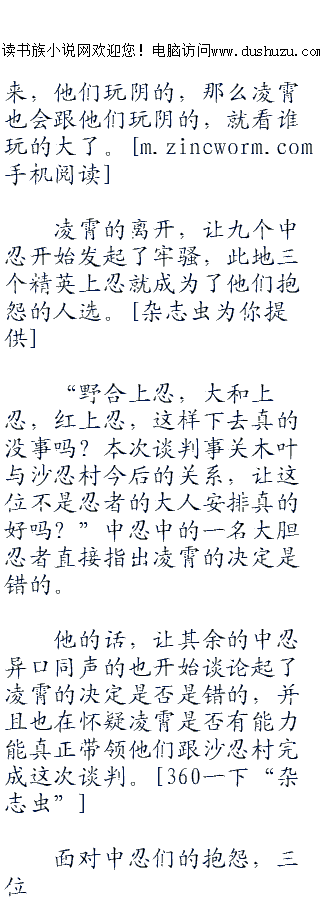 读书族小说网欢迎您！电脑访问www.dushuzu.com
来，他们玩阴的，那么凌霄
也会跟他们玩阴的，就看谁
玩的大了。[m.zincworm.com
手机阅读]
凌霄的离开，让九个中
忍开始发起了牢骚，此地三
个精英上忍就成为了他们抱
怨的人选。[杂志虫为你提
供]
“野合上忍，大和上
忍，红上忍，这样下去真的
没事吗？本次谈判事关木叶
与沙忍村今后的关系，让这
位不是忍者的大人安排真的
好吗？”中忍中的一名大胆
忍者直接指出凌霄的决定是
错的。
他的话，让其余的中忍
异口同声的也开始谈论起了
凌霄的决定是否是错的，并
且也在怀疑凌霄是否有能力
能真正带领他们跟沙忍村完
成这次谈判。[360一下“杂
志虫”]
面对中忍们的抱怨，三
位